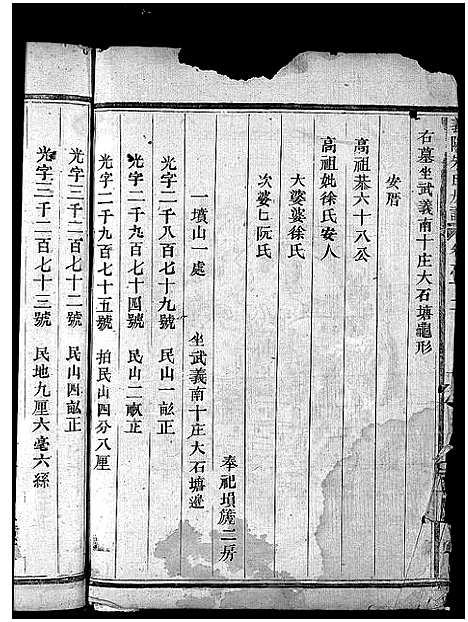 右墓坐武義南十庄大石塘龜形
安厝
高祖恭六十八公
高祖妣徐氏安人
大婆婆徐氏
次婆七阮氏
奉祀塤篪二房
一墳山一處 坐武義南十庄大石塘邊
光字二千八百七十九號 民山一畝正
光字二千九百七十四號 民山二畝正
光字二千九百七十五號 拍民山四分八厘
光字三千二百七十二號 民山四畝正
光字三千二百七十三號 民地九厘六毫六絲